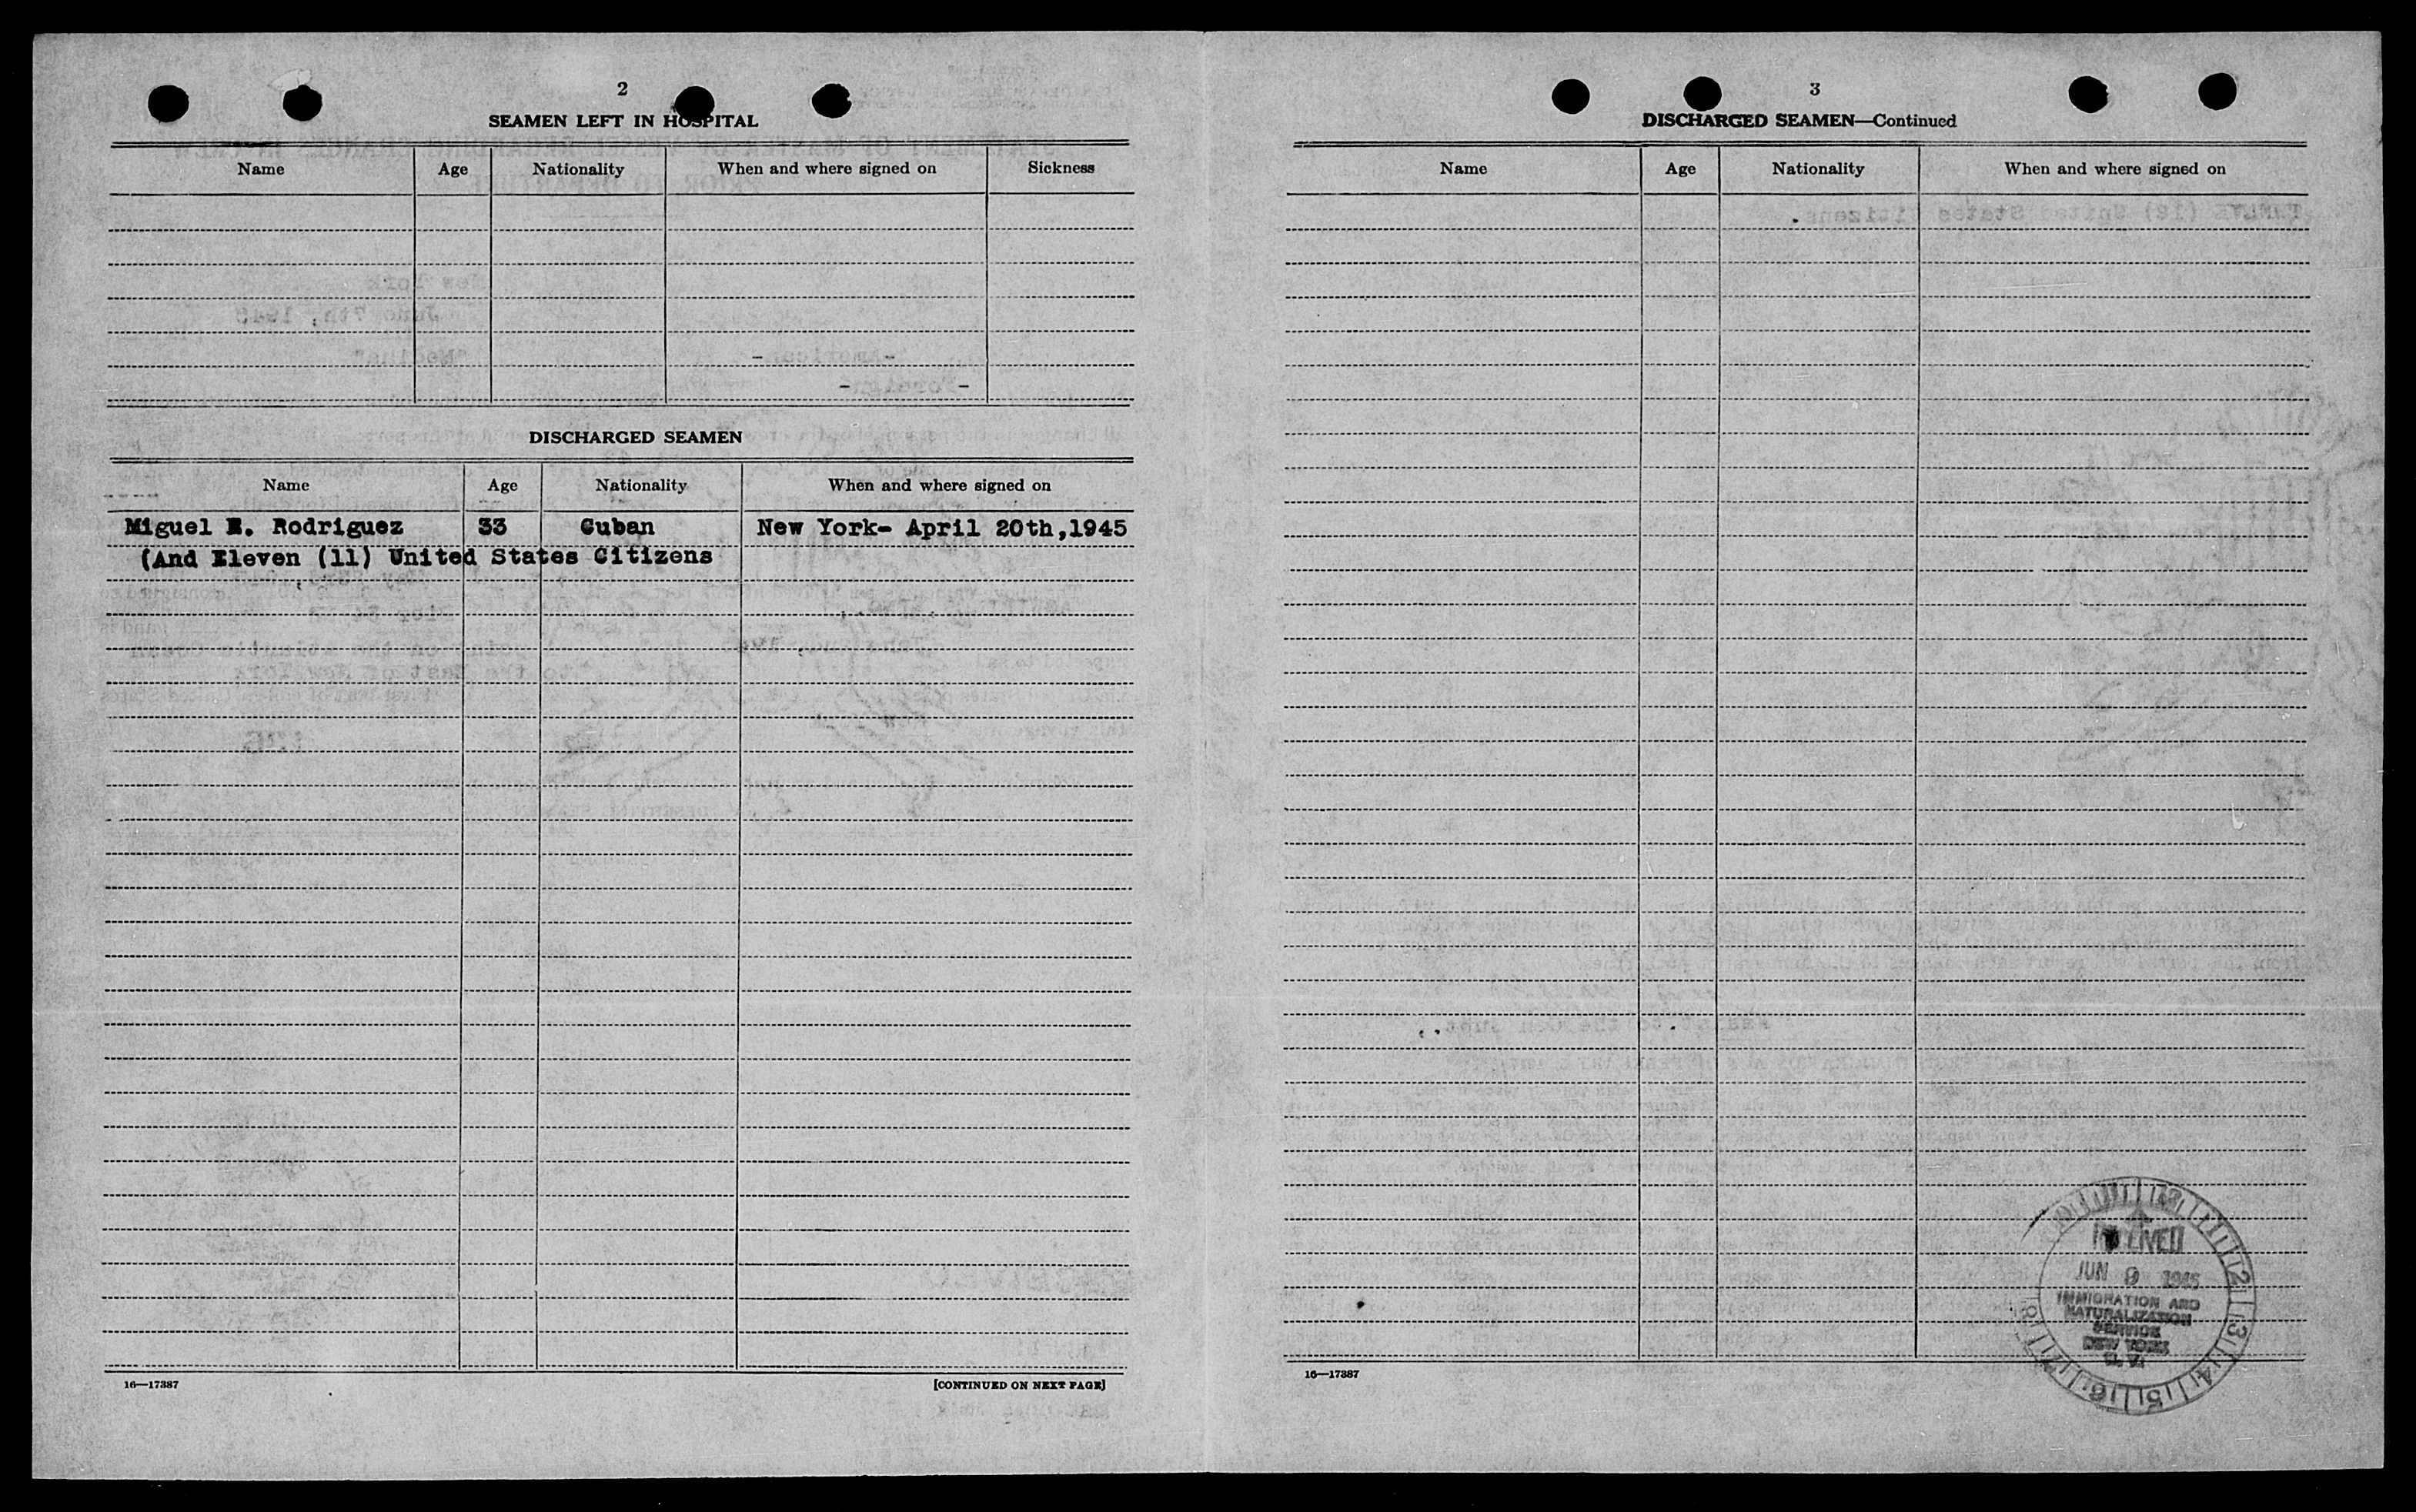 2
SEAMEN LEFT IN HOSPITAL
Name Age Nationality When and where signed on Sickness
DISCHARGED SEAMEN
Name Age Nationality When and where signed on
Miguel E. Rodriguez 33 Cuban New York- April 20th,1945
(And Eleven (11) United States Citizens
16—17387 [CONTINUED ON NEXT PAGE]
3
DISCHARGED SEAMEN—Continued
Name Age Nationality When and where signed on
RECEIVED
JUN 9 1945
IMMIGRATION AND
NATURALIZATION
SERVICE
NEW YORK
N. Y.
16—17387